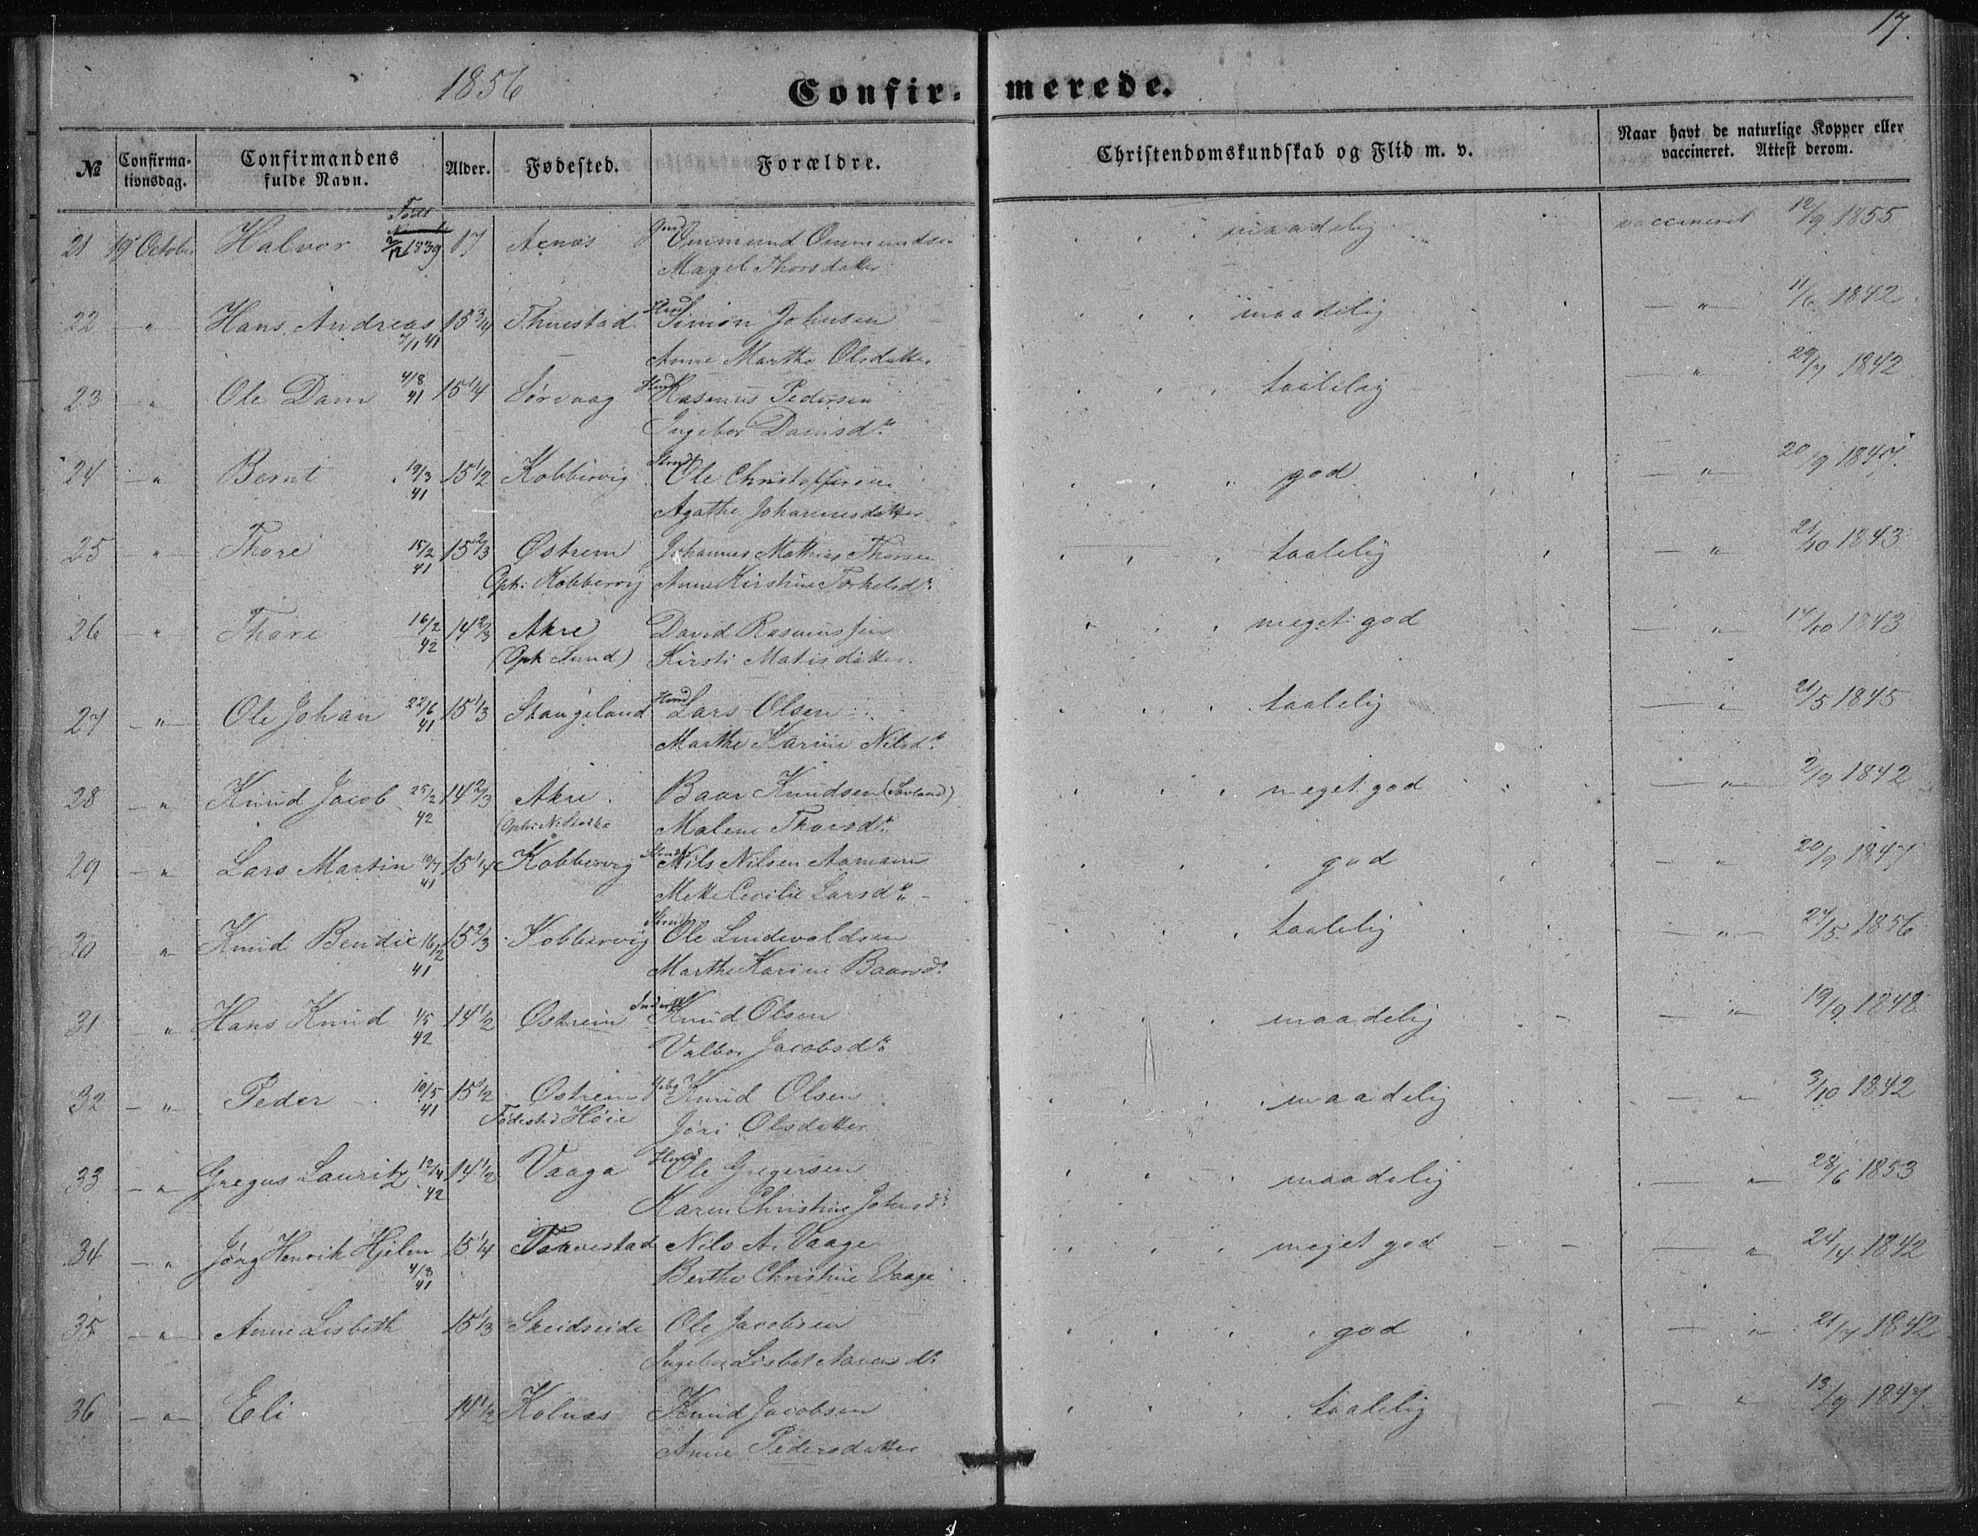 17.
1856
Confir- merede.
№ Confirma-tionsdag. Confirmandens fulde Navn. Alder. Fødested. Forældre. Christendomskundskab og Flid m. v. Naar havt de naturlige Kopper eller vaccineret. Attest derom.
21 19 October Halvor 2/12 1839 17 Ommund Ommundsen maadelig vaccineret 12/9 1855
Magel Thorsdatter
22 Hans Andreas 15 3/4 Simon Johnsen maadelig 11/6 1842
7/1 41 Anne Marthe Olsdatter
23 Ole Dam 4/8 41 15 1/4 Sørvaag Rasmus Pedersen taalelig 29/7 1842
Ingebor Damsdr
24 Bernt 19/3 41 15 1/2 Kobbervig Ole Christoffersen god 20/9 1847.
Agathe Johannesdatter
25 Thore 15/2 41 15 2/3 Østrem Johannes Mathias Thorsen taalelig 21/10 1843
Oph: Kobbervig Anne Kirstine Torkelsdr
26 Thore 16/2 42 14 2/3 Akre David Rasmussen meget god 17/10 1843
(Oph Sund) Kirsti Matisdatter
27 Ole Johan 22/6 41 15 1/3 Stangeland Lars Olsen taalelig 21/5 1845
Marthe Karine Nilsdr
28 Knud Jacob 25/2 42 14 2/3 Akre Baar Knudsen meget god 2/9 1842
Malene Thorsdr
29 Lars Martin 41 15 1/4 Kobbervig Nils Nilsen god 20/9 1847
Mette Cecilie Larsdr
30 Knud Bendic 16/2 41 15 2/3 Kobbervig Ole taalelig 27/5 1856
Marthe Karine Baarsdr
31 Hans Knud 42 14 1/2 Østrem Knud Olsen maadelig 19/9 1848
Valbor Jacobsdr
32 Peder 10/5 41 15 1/2 Østrem Knud Olsen maadelig 3/10 1842
Fødested Høie Jøri Olsdatter
33 Gregus Lauritz 12/4 42 14 1/2 Vaaga Ole Gregersen maadelig 28/6 1853
Karen Christine Johnsdr
34 Jørg Henrik Hjelm 15 1/4 Nils A. Vaage meget god 24/4 1842
41 Berthe Christine Vaage
35 Anne Lisbeth 15 1/3 Skeidseide Ole Jacobsen god 21/7 1842
Ingebor Lisbet
36 Eli 14 1/2 Kolnæs Knud Jacobsen taalelig 13/9 1847.
Anne Pedersdatter